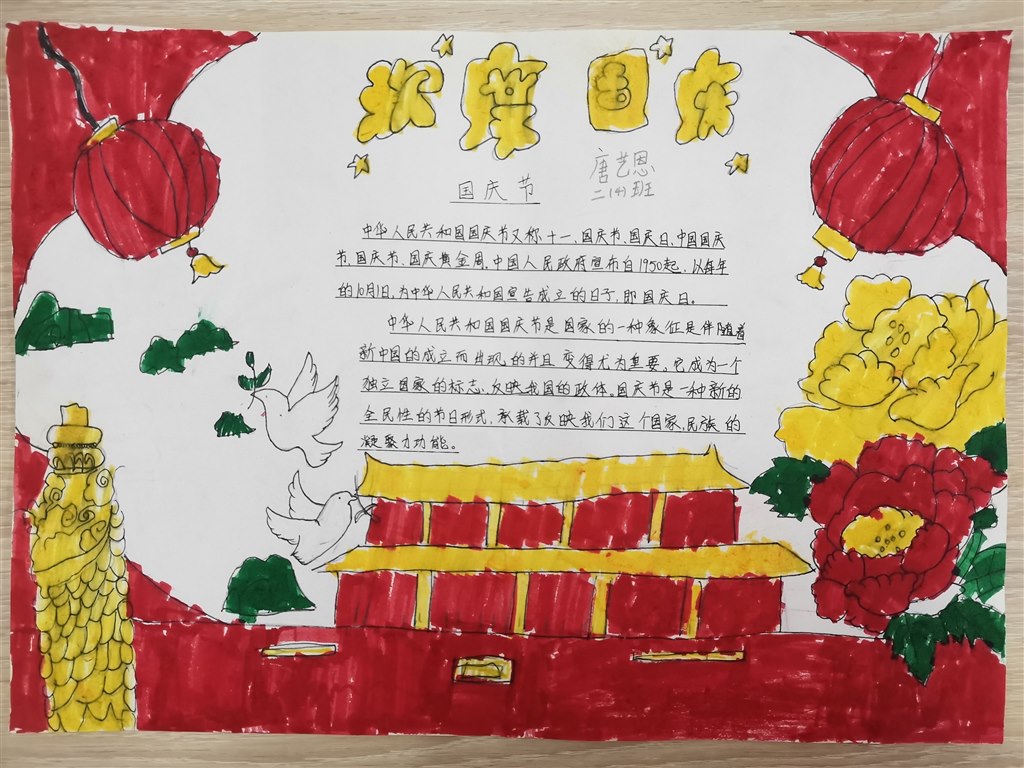 欢度国庆
唐艺恩
二(4)班
国庆节
中华人民共和国国庆节又称十一、国庆节、国庆日、中国国庆
节、国庆节、国庆黄金周。中国人民政府宣布自1950起，以每年
的10月1日，为中华人民共和国宣告成立的日子，即国庆日。
中华人民共和国国庆节是国家的一种象征是伴随着
新中国的成立而出现的并且变得尤为重要。它成为一个
独立国家的标志、反映我国的政体。国庆节是一种新的
全民性的节日形式，承载了反映我们这个国家，民族的
凝聚力功能。